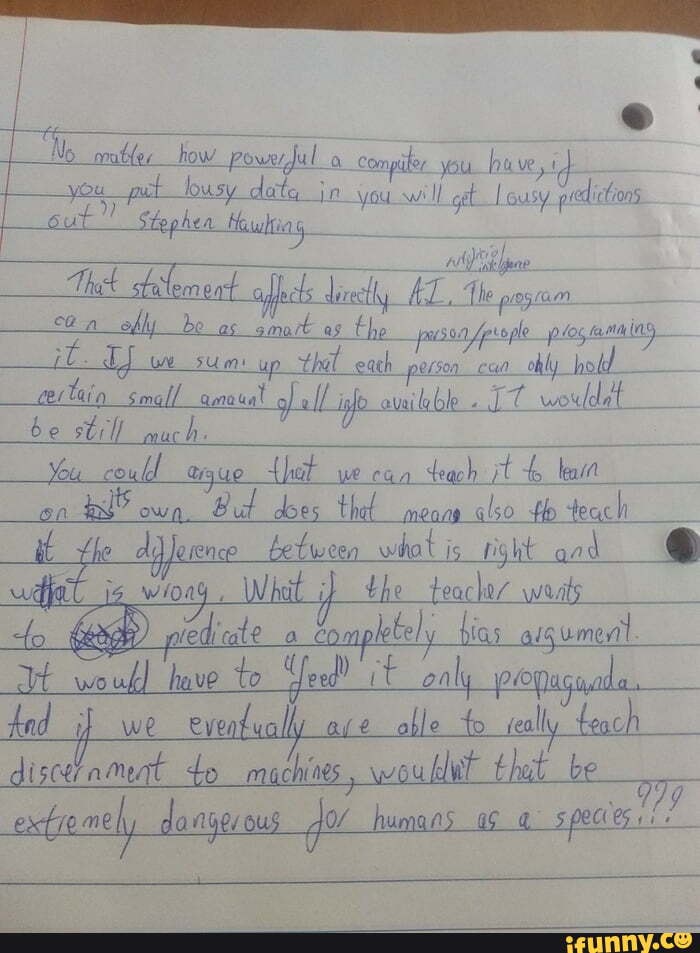 "No matter how powerful a computer you have, if
you put lousy data in you will get lousy predictions
out" Stephen Hawking
artificial
intelligence
That statement affects directly AI. The program
can only be as smart as the person/people programming
it. If we sum up that each person can only hold
certain small amount of all info available. IT wouldn't
be still much.
You could argue that we can teach it to learn
on its own. But does that means also to teach
it the difference between what is right and
what is wrong. What if the teacher wants
to predicate a completely bias argument.
It would have to "feed" it only propaganda.
And if we eventually are able to really teach
discernment to machines, wouldn't that be
extremely dangerous for humans as a species!???
ifunny.co